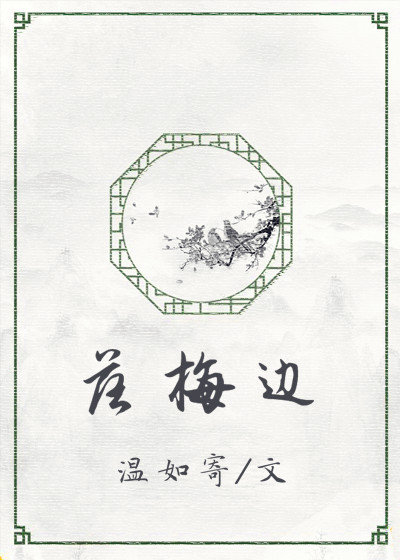 梅边
温如寄/文